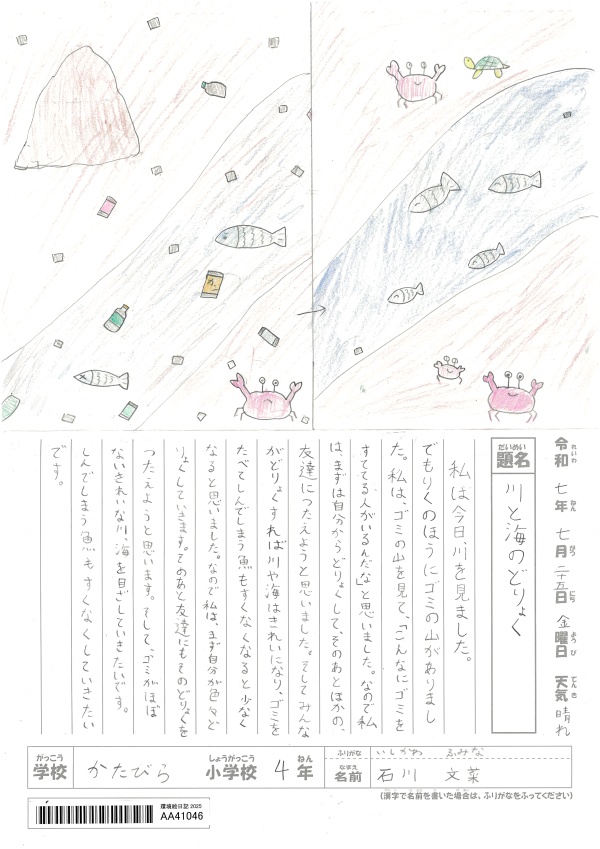 令和 七年 七月 二十五日 金曜日 天気 晴れ
れいわ ねん がつ にち ようび てんき
だいめい
題名
川と海のどりょく
私は今日、川を見ました。
でもりくのほうにゴミの山がありまし
た。私は、ゴミの山を見て、「こんなにゴミを
すててる人がいるんだな」と思いました。なので私
は、まずは自分からどりょくして、そのあとほかの、
友達につたえようと思いました。そしてみんな
がどりょくすれば川や海はきれいになり、ゴミを
たべてしんでしまう魚もすくなくなると少なく
なると思いました。なので私は、まず自分が色々ど
りょくしていきます。そのあと友達にもそのどりょくを
つたえようと思います。そして、ゴミがほぼ
ないきれいな川、海を目ざしていきたいです。
しんでしまう魚もすくなくしていきたい
です。
がっこう しょうがっこう ねん
学校 かたびら 小学校 4年
ふりがな いしかわ ふみな
なまえ
名前 石川 文菜
(漢字で名前を書いた場合は、ふりがなをふってください)
環境絵日記 2025
AA41046